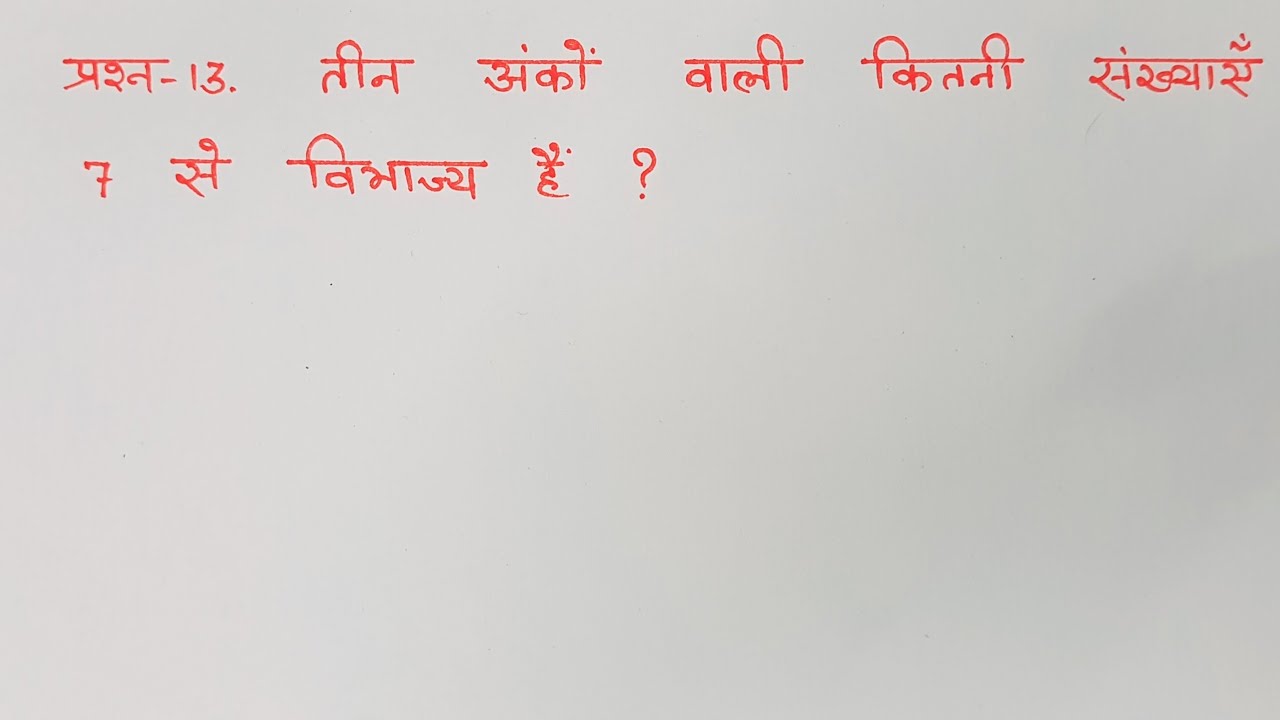 प्रश्न-13. तीन अंकों वाली कितनी संख्याएँ
7 से विभाज्य हैं ?